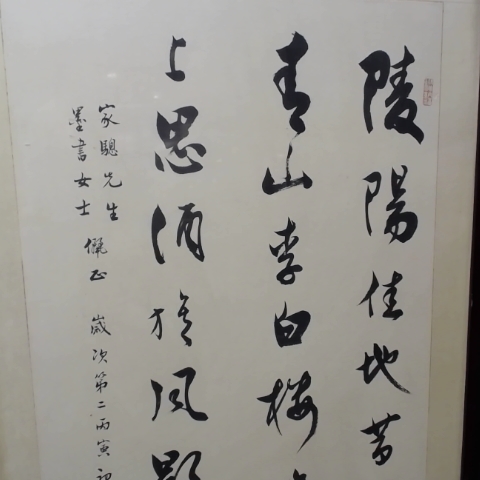 陵陽佳地昔
青山李白樓
上思酒旗風影
家驄先生
墨書女士
儷正 歲次第二丙寅初